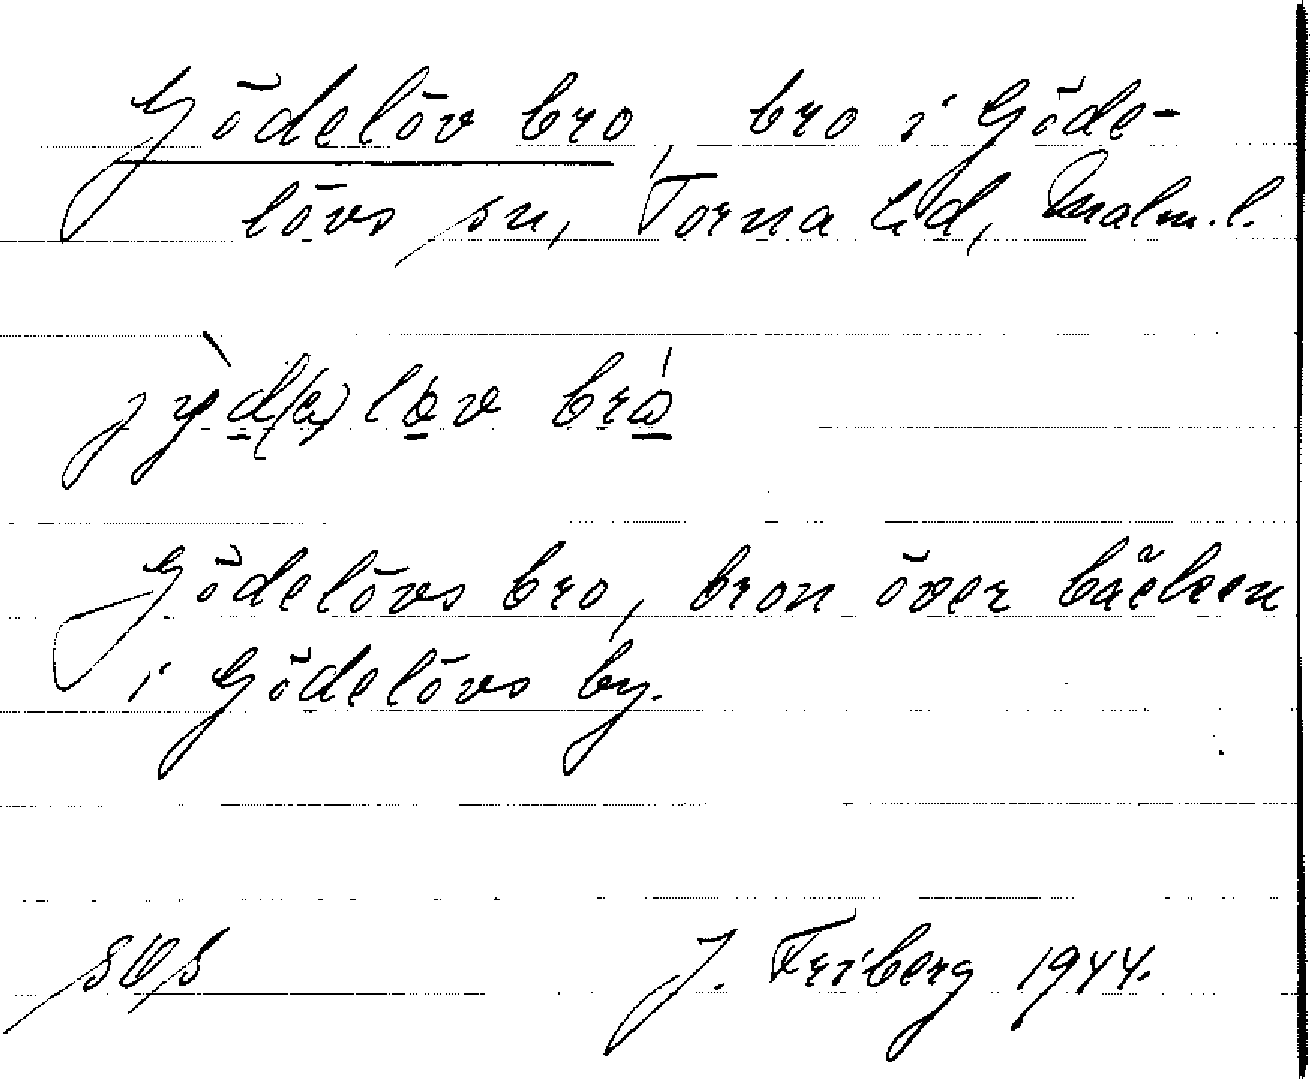 Gödelöv bro, bro i Göde-
lövs sn, Torna hd, Malm. l.
jỳd(ə)løv bró
Gödelövs bro, bron över bäcken
i Gödelövs by.
J. Friberg 1944.